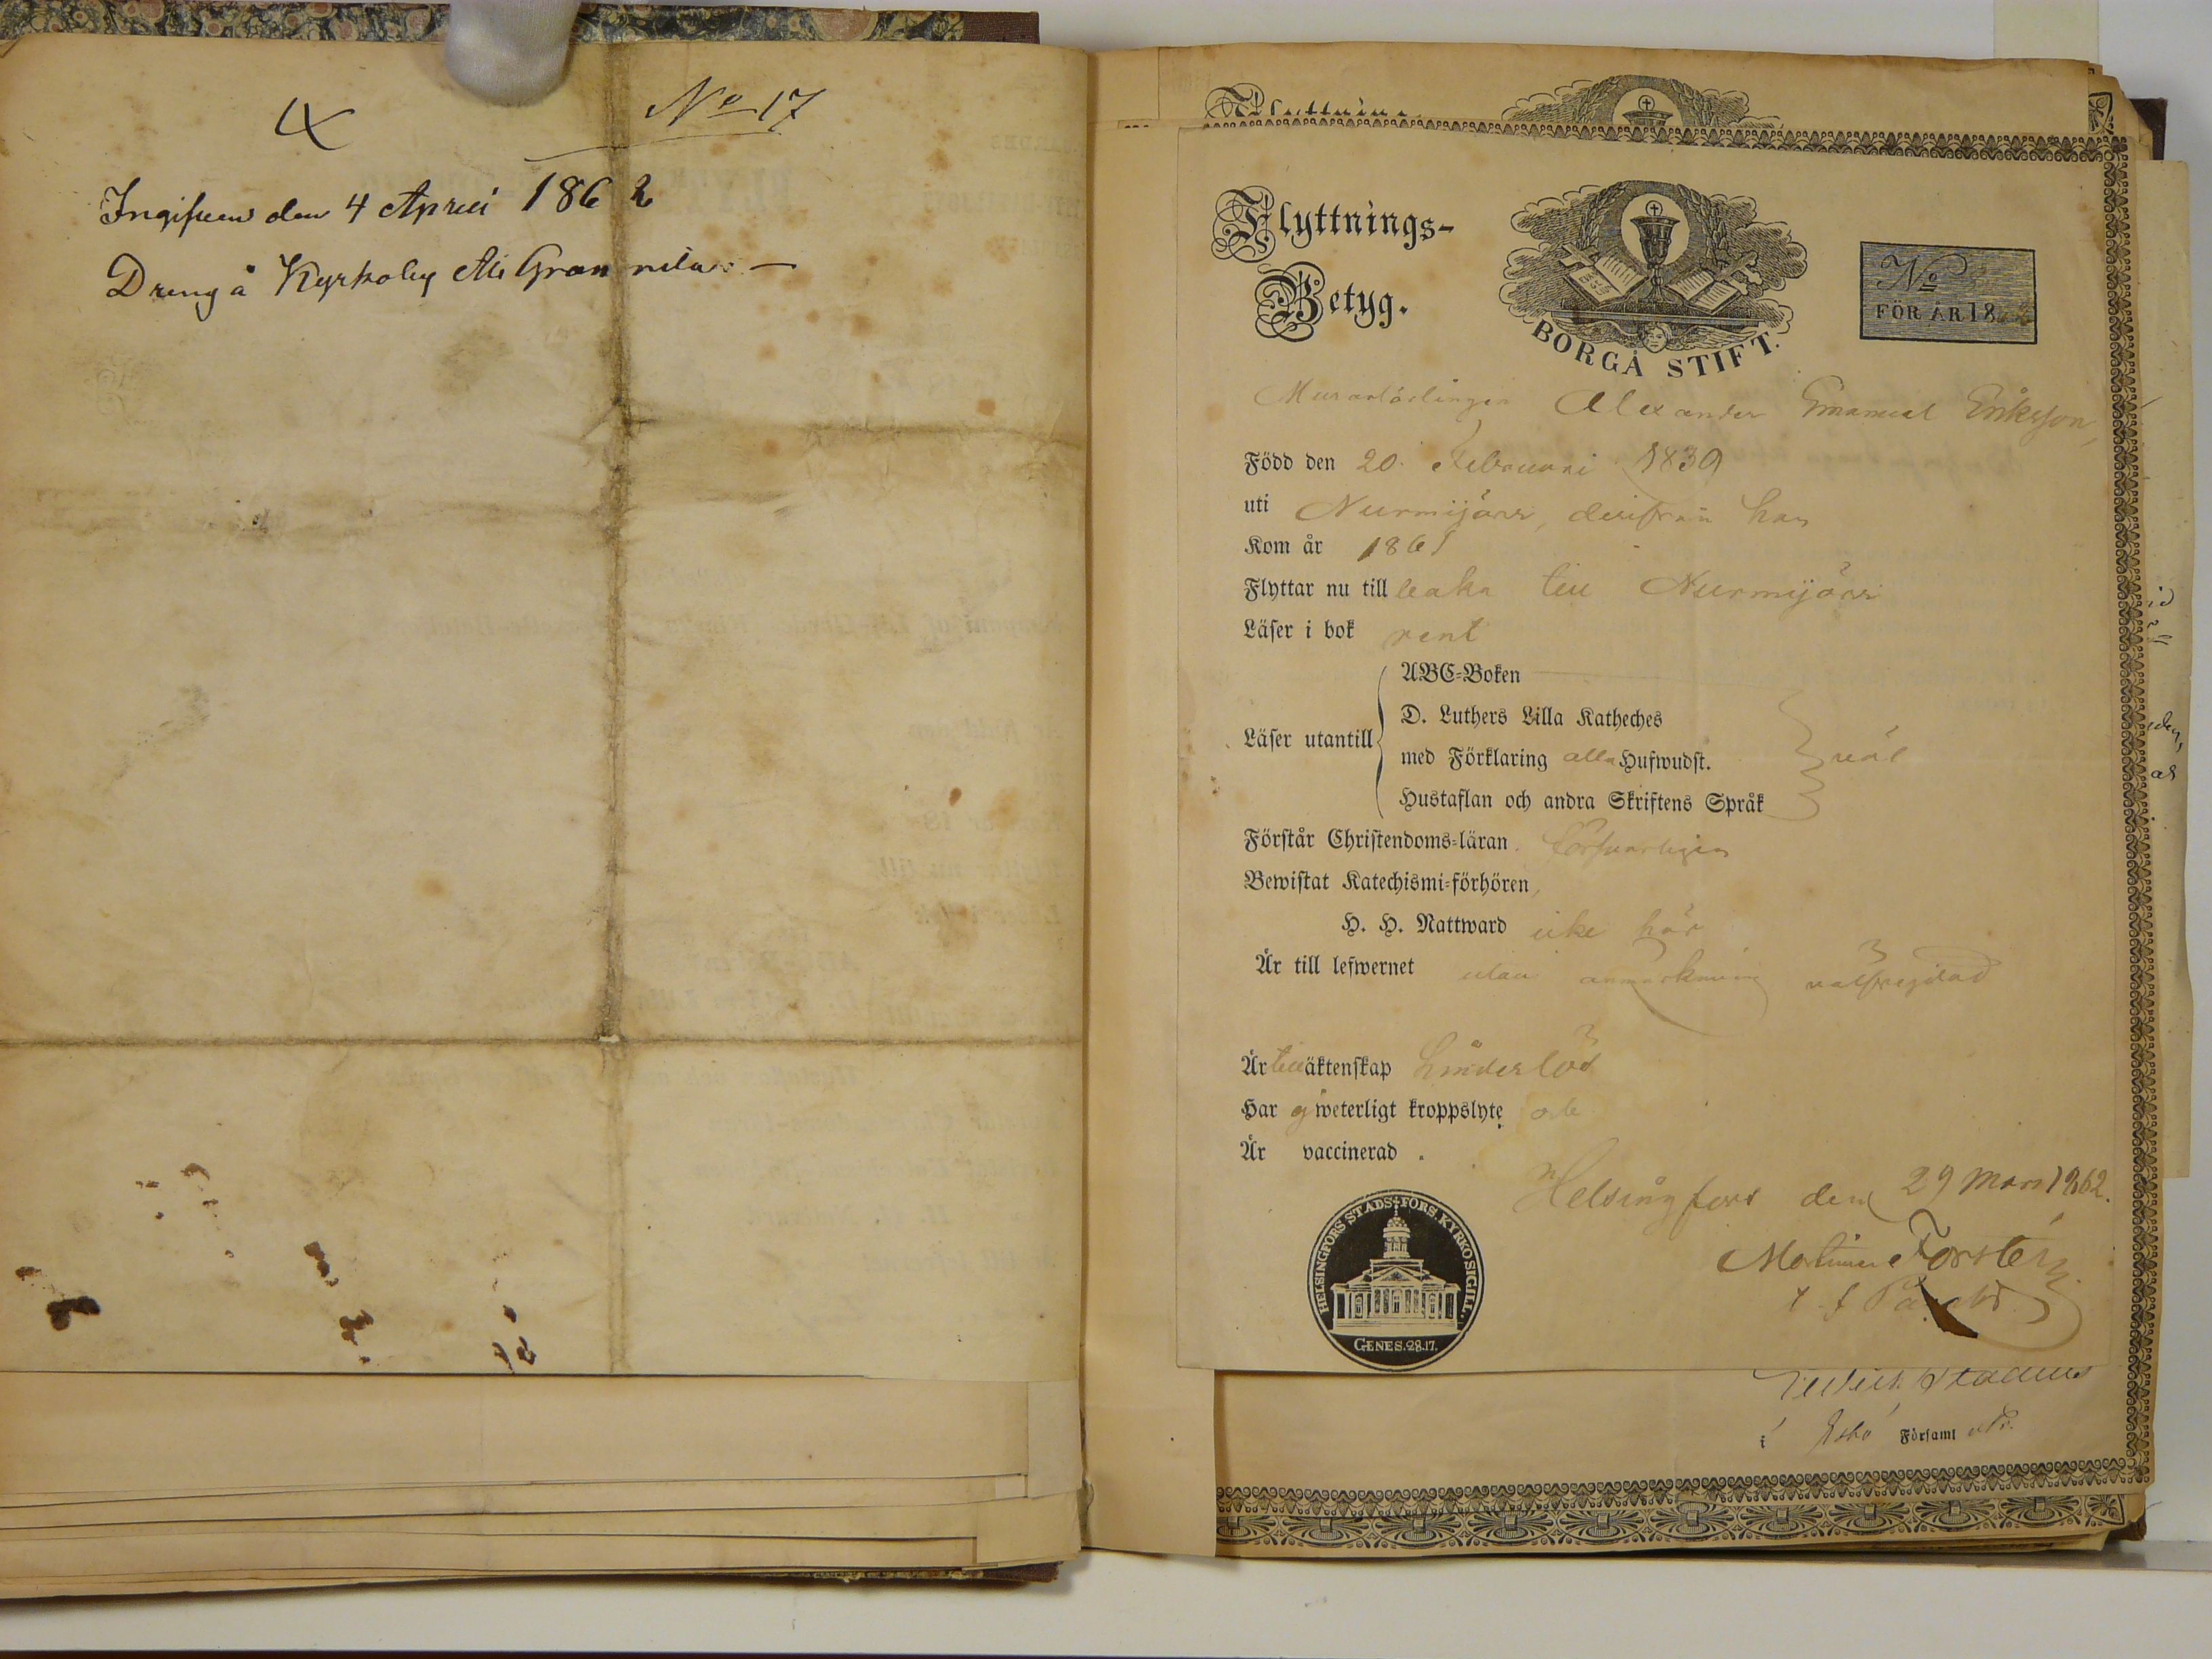 4
No 17
Ingifven den 4 April 1862
Dreng å Kyrkoby
Flyttnings-
Betyg.
BORGÅ STIFT.
No
FÖR ÅR 18
Murarlärlingen Alexander Emanuel Eriksson,
Född den 20. Februari 1839
uti Nurmijärvi, derifrån han
Kom år 1861
Flyttar nu till baka till Nurmijärvi
Läser i bok rent
ABC-Boken
D. Luthers Lilla Katheches
Läser utantill
med Förklaring alla Hufwudst. väl
Hustaflan och andra Skriftens Språk
Förstår Christendoms-läran försvarligen
Bewistat Katechismi-förhören,
H. H. Nattward icke här
Är till lefwernet utan anmärkning välfrejdad
Är till äktenskap hinderlös
Har ej weterligt kroppslyte och
Är vaccinerad.
Helsingfors den 29 Mars 1862.
Forstén
HELSINGFORS STADS FÖRS. KYRKOSIGILL.
GENES. 28.17.
i Esbo Församl